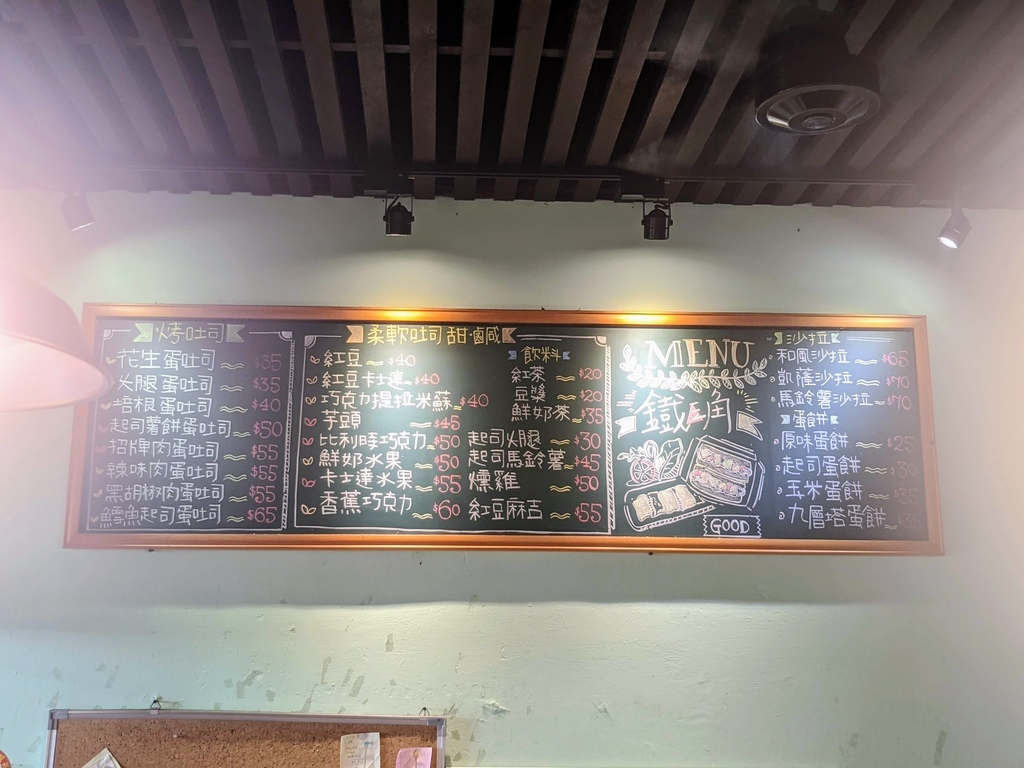 烤吐司
花生蛋吐司 $35
火腿蛋吐司 $35
培根蛋吐司 $40
起司薯餅蛋吐司 $50
招牌肉蛋吐司 $55
辣味肉蛋吐司 $55
黑胡椒肉蛋吐司 $55
鱈魚起司蛋吐司 $65
柔軟吐司 甜·鹹
紅豆 $40
紅豆卡士達 $40
巧克力提拉米蘇 $40
芋頭 $45
比利時巧克力 $50
鮮奶水果 $50
卡士達水果 $55
香蕉巧克力 $60
飲料
紅茶 $20
豆漿 $20
鮮奶茶 $35
起司火腿 $30
起司馬鈴薯 $45
燻雞 $50
紅豆麻吉 $55
MENU
鐵三角
GOOD
沙拉
和風沙拉 $65
凱薩沙拉 $70
馬鈴薯沙拉 $70
蛋餅
原味蛋餅 $25
起司蛋餅 $30
玉米蛋餅 $35
九層塔蛋餅 $35